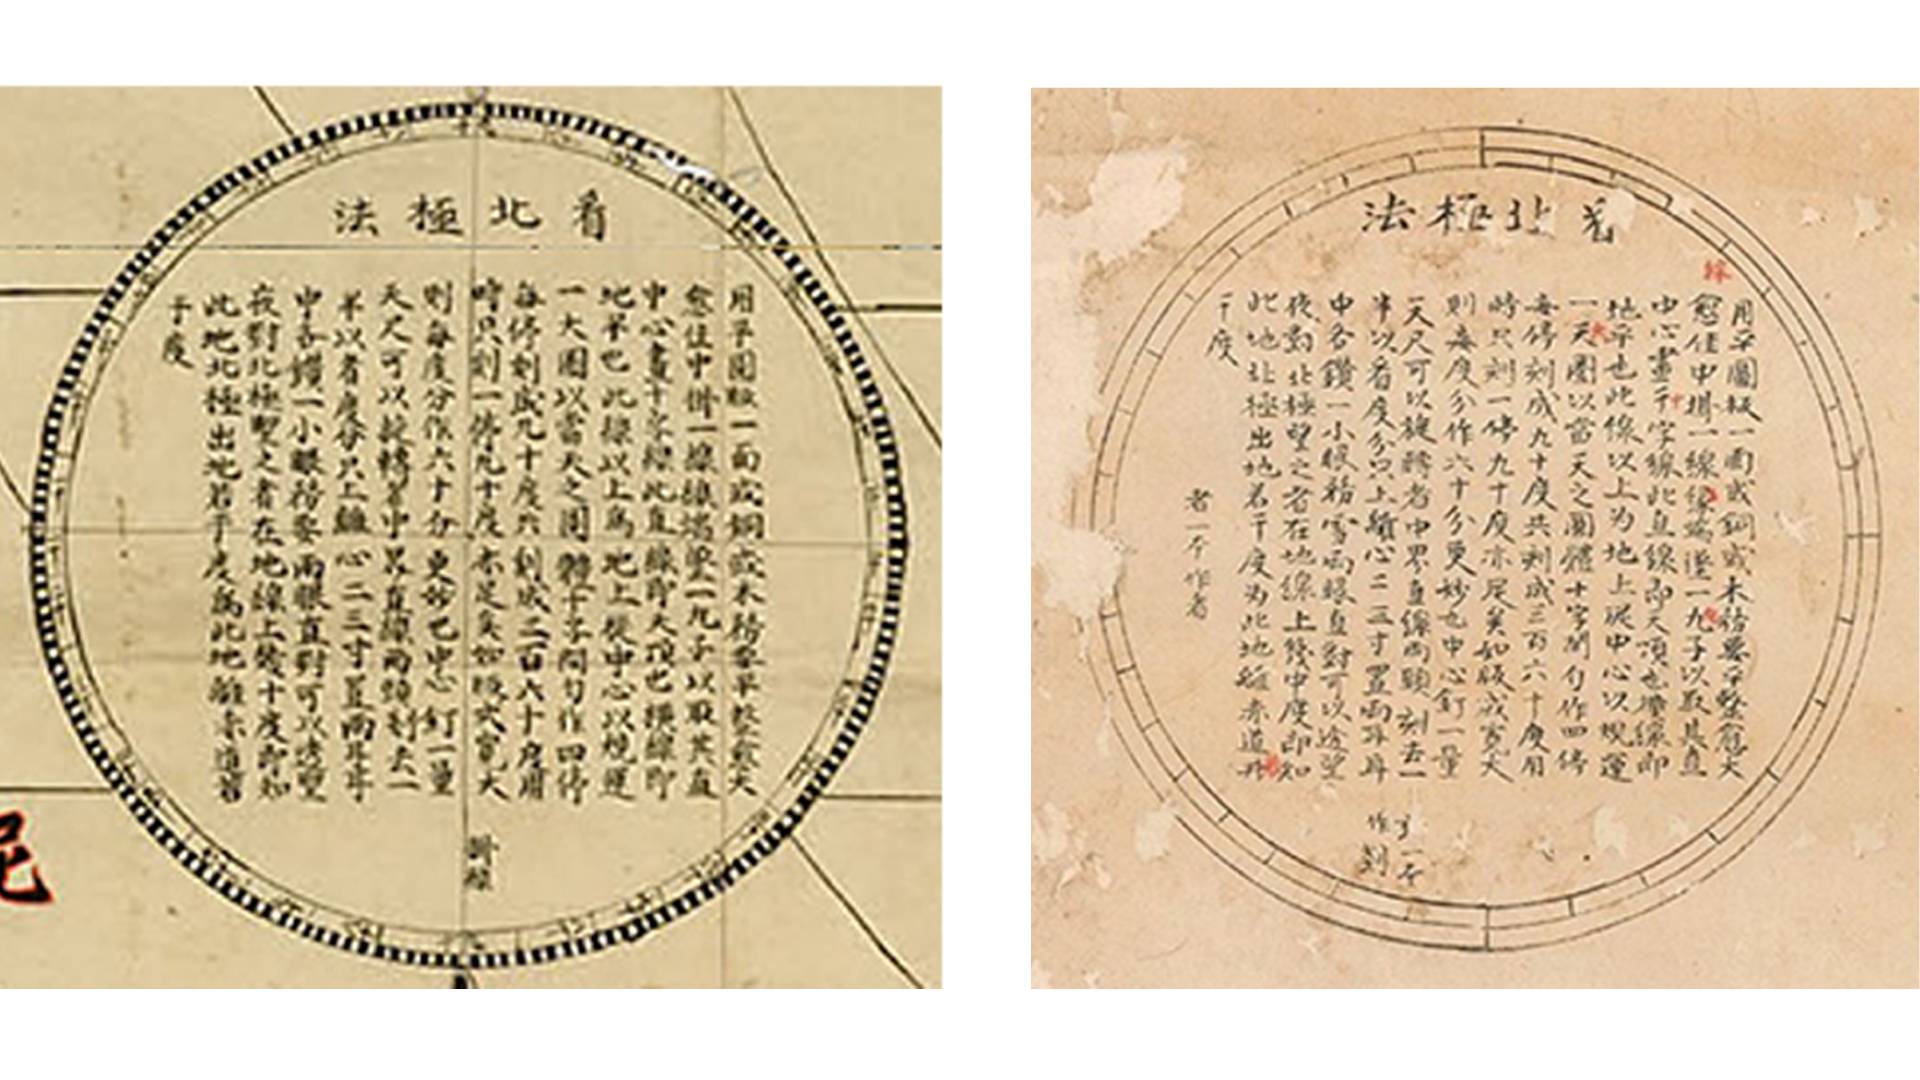 看北極法
用平圓板一面或銅或木務要平整愈大
愈佳中掛一線線端墜一丸子以取其直
中心畫十字線此直線即天頂也橫線即
地平也此線以上為地上從中心以規運
一大圈以當天之圓體十字間勻作四停
每停刻成九十度共刻成三百六十度用
時只刻一停九十度亦足矣如板或寬大
則每度分作六十分更妙也中心釘一量
天尺可以旋轉者中界直線兩頭刻去一
半以看度分只上離心二三寸置兩耳耳
中各鑽一小眼務要兩眼直對可以透望
夜對北極望之看在地線上幾十度即知
此地北極出地若干度為此地離赤道若
干度
掛線
看北極法
用平圓板一面或銅或木務要平整愈大
愈佳中掛一線線端墜一丸子以取其直
中心畫干字線此直線即天頂也橫線即
地平也此線以上为地上從中心以規運
一天圈以當天之圓體十字間勻作四停
每停刻成九十度共刻成三百六十度用
時只刻一停九十度亦足矣如版或寬大
則每度分作六十分更妙也中心釘一量
天尺可以旋轉者中界直線兩頭刻去一
半以看度分只上離心二三寸置兩耳耳
中各鑽一小眼務當兩眼直對可以透望
夜對北極望之看在地線上幾十度即知
此地北極出地若干度为此地離赤道
干度
者一本作看
一本作刻